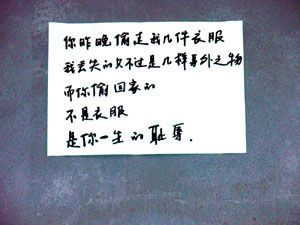 你昨晚偷走我几件衣服
我丢失的只不过是几样身外之物
而你偷回家的
不是衣服
是你一生的耻辱.